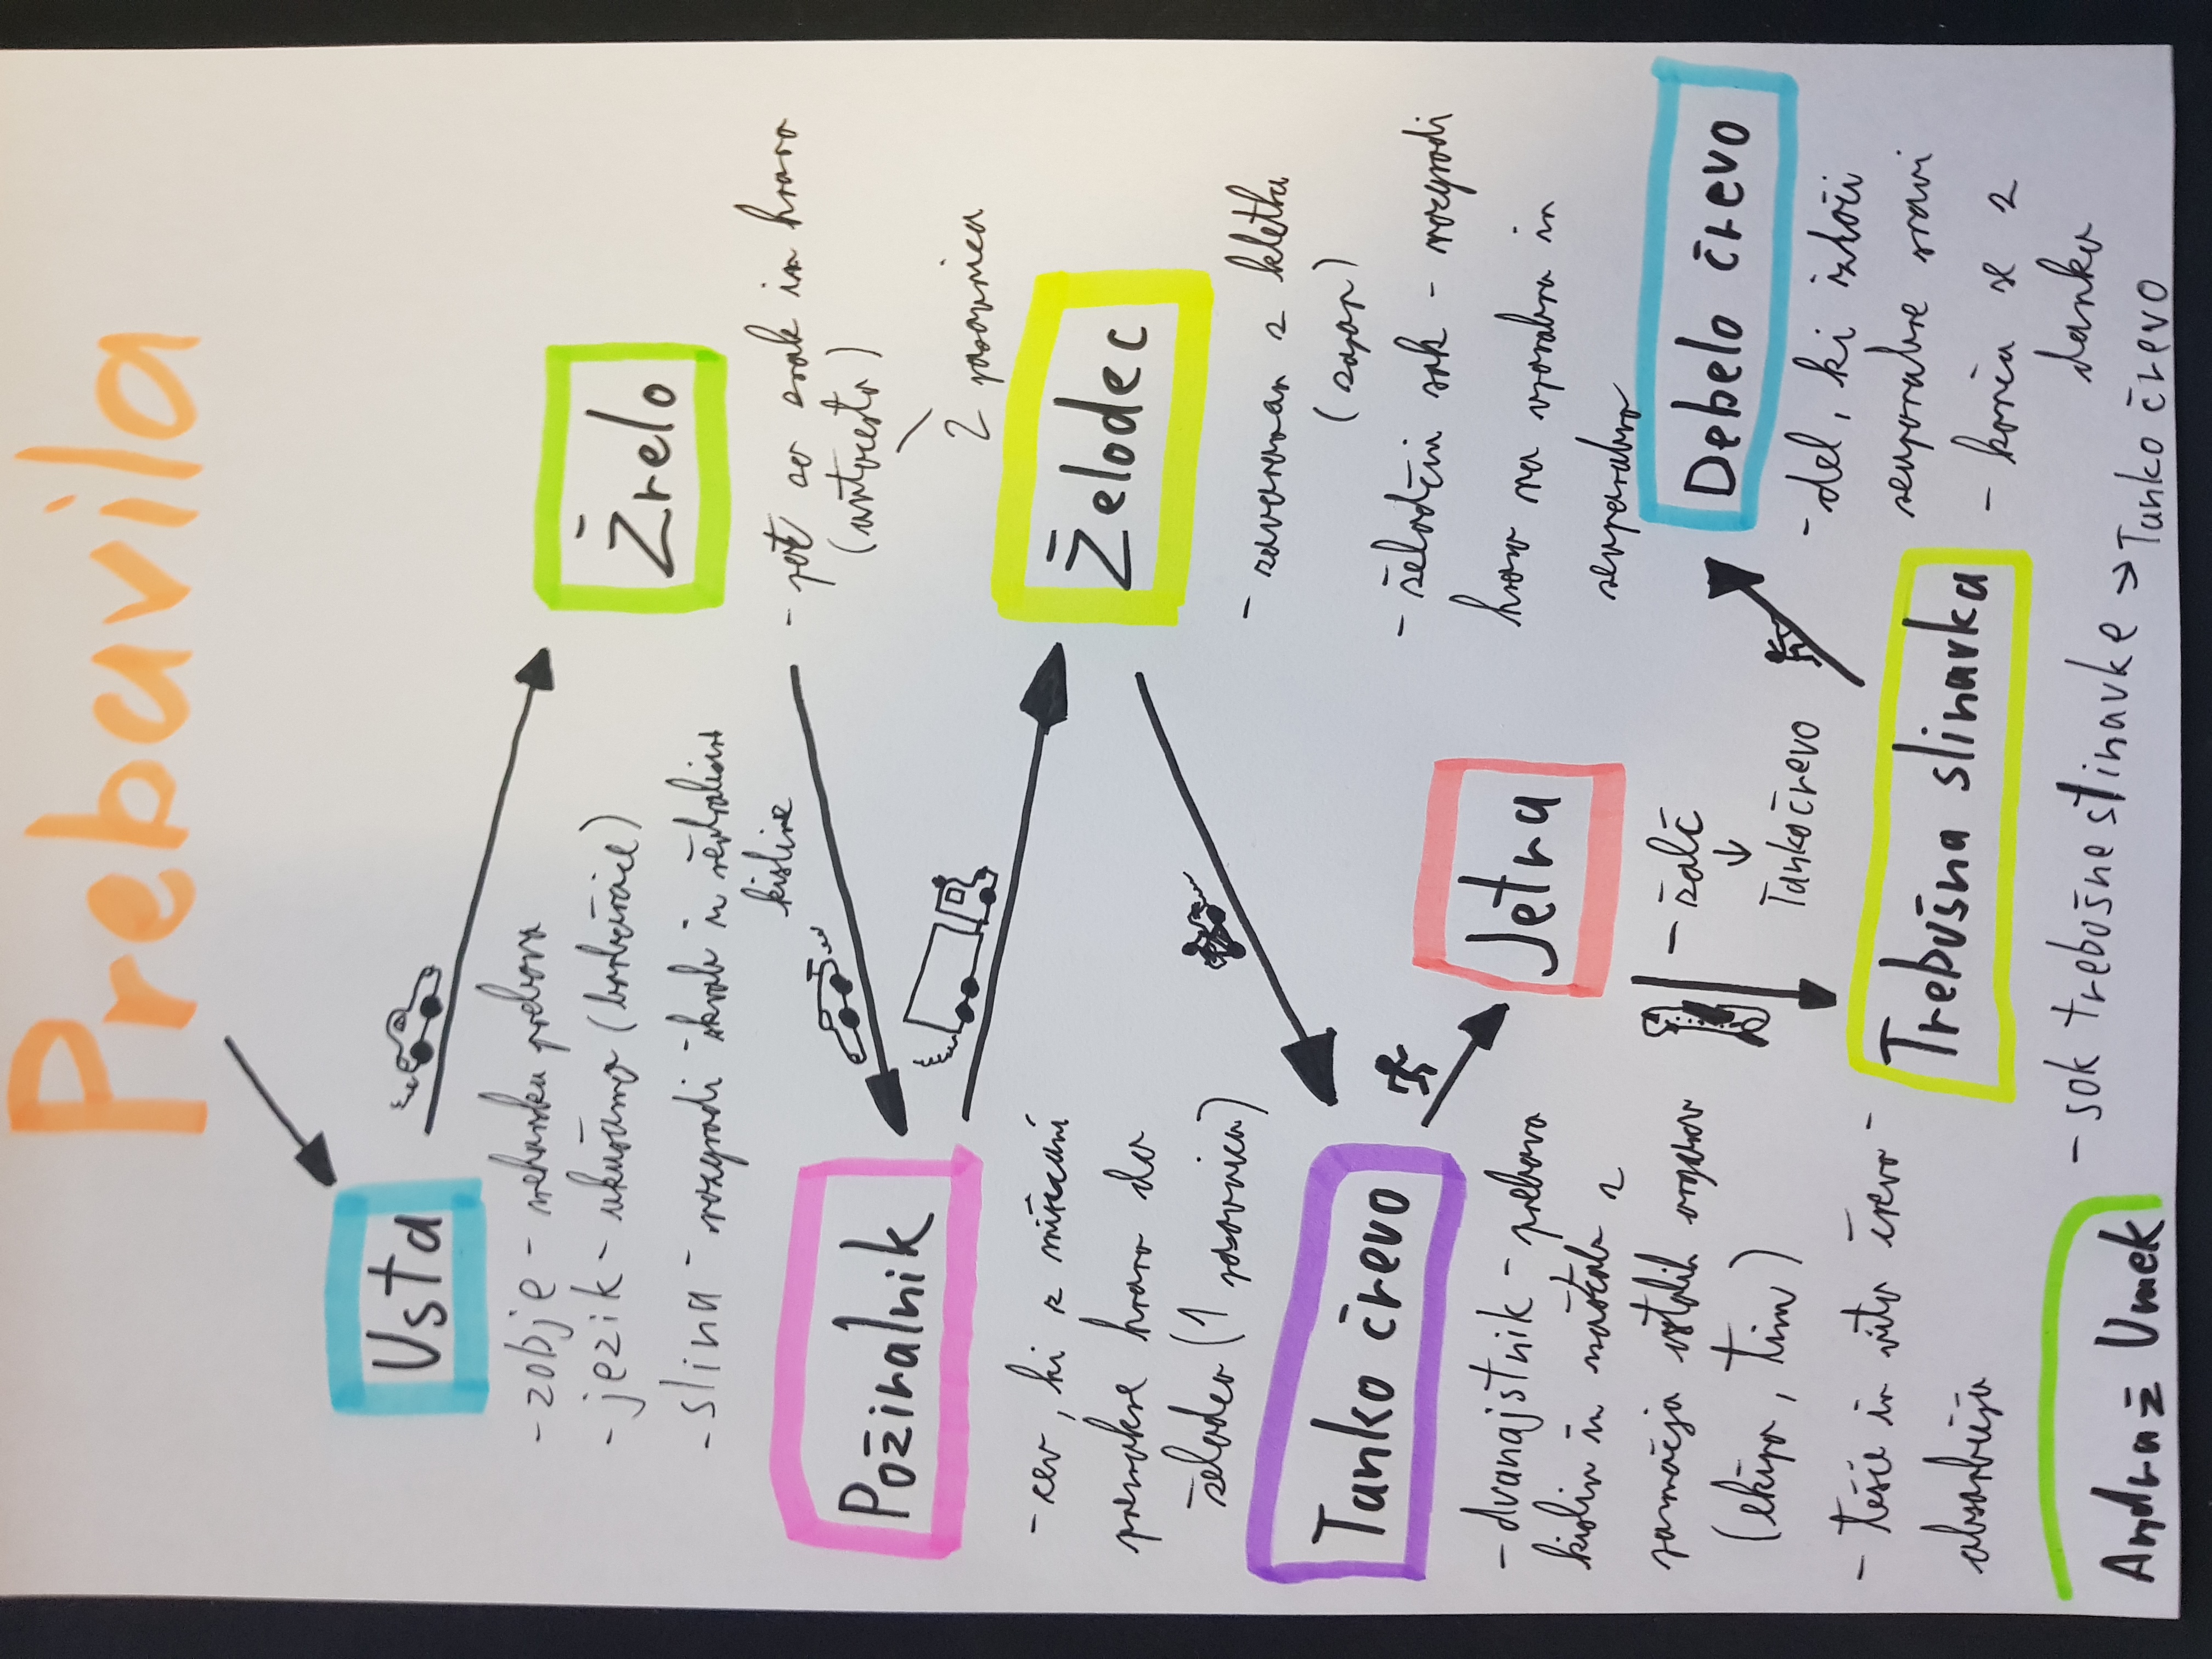 Prebavila
Usta
- zobje - mehanska prebava
- jezik - okušamo (brbončice)
- slina - razgradi škrob in nevtralizira
kisline
Žrelo
- pot za zrak in hrano
(avtocesta)
2 pasovnica
Požiralnik
- cev, ki z mišicami
premakne hrano do
želodca (1 pasovnica)
Želodec
- zavarovan z kletka
(zapor)
- želodčni sok - razgradi
hrano na uporabno in
neuporabno
Tanko črevo
- dvanajstnik - prebava
kislin in maščob z
pomočjo ostalih organov
(ekipa, tim)
- tešče in vito črevo -
absorbcija
Jetra
- žolč
↓
Tanko črevo
Trebušna slinavka
- sok trebušne slinavke → Tanko črevo
Debelo črevo
- del, ki izloči
neuporabne snovi
- konča se z
danko
Andraž Umek